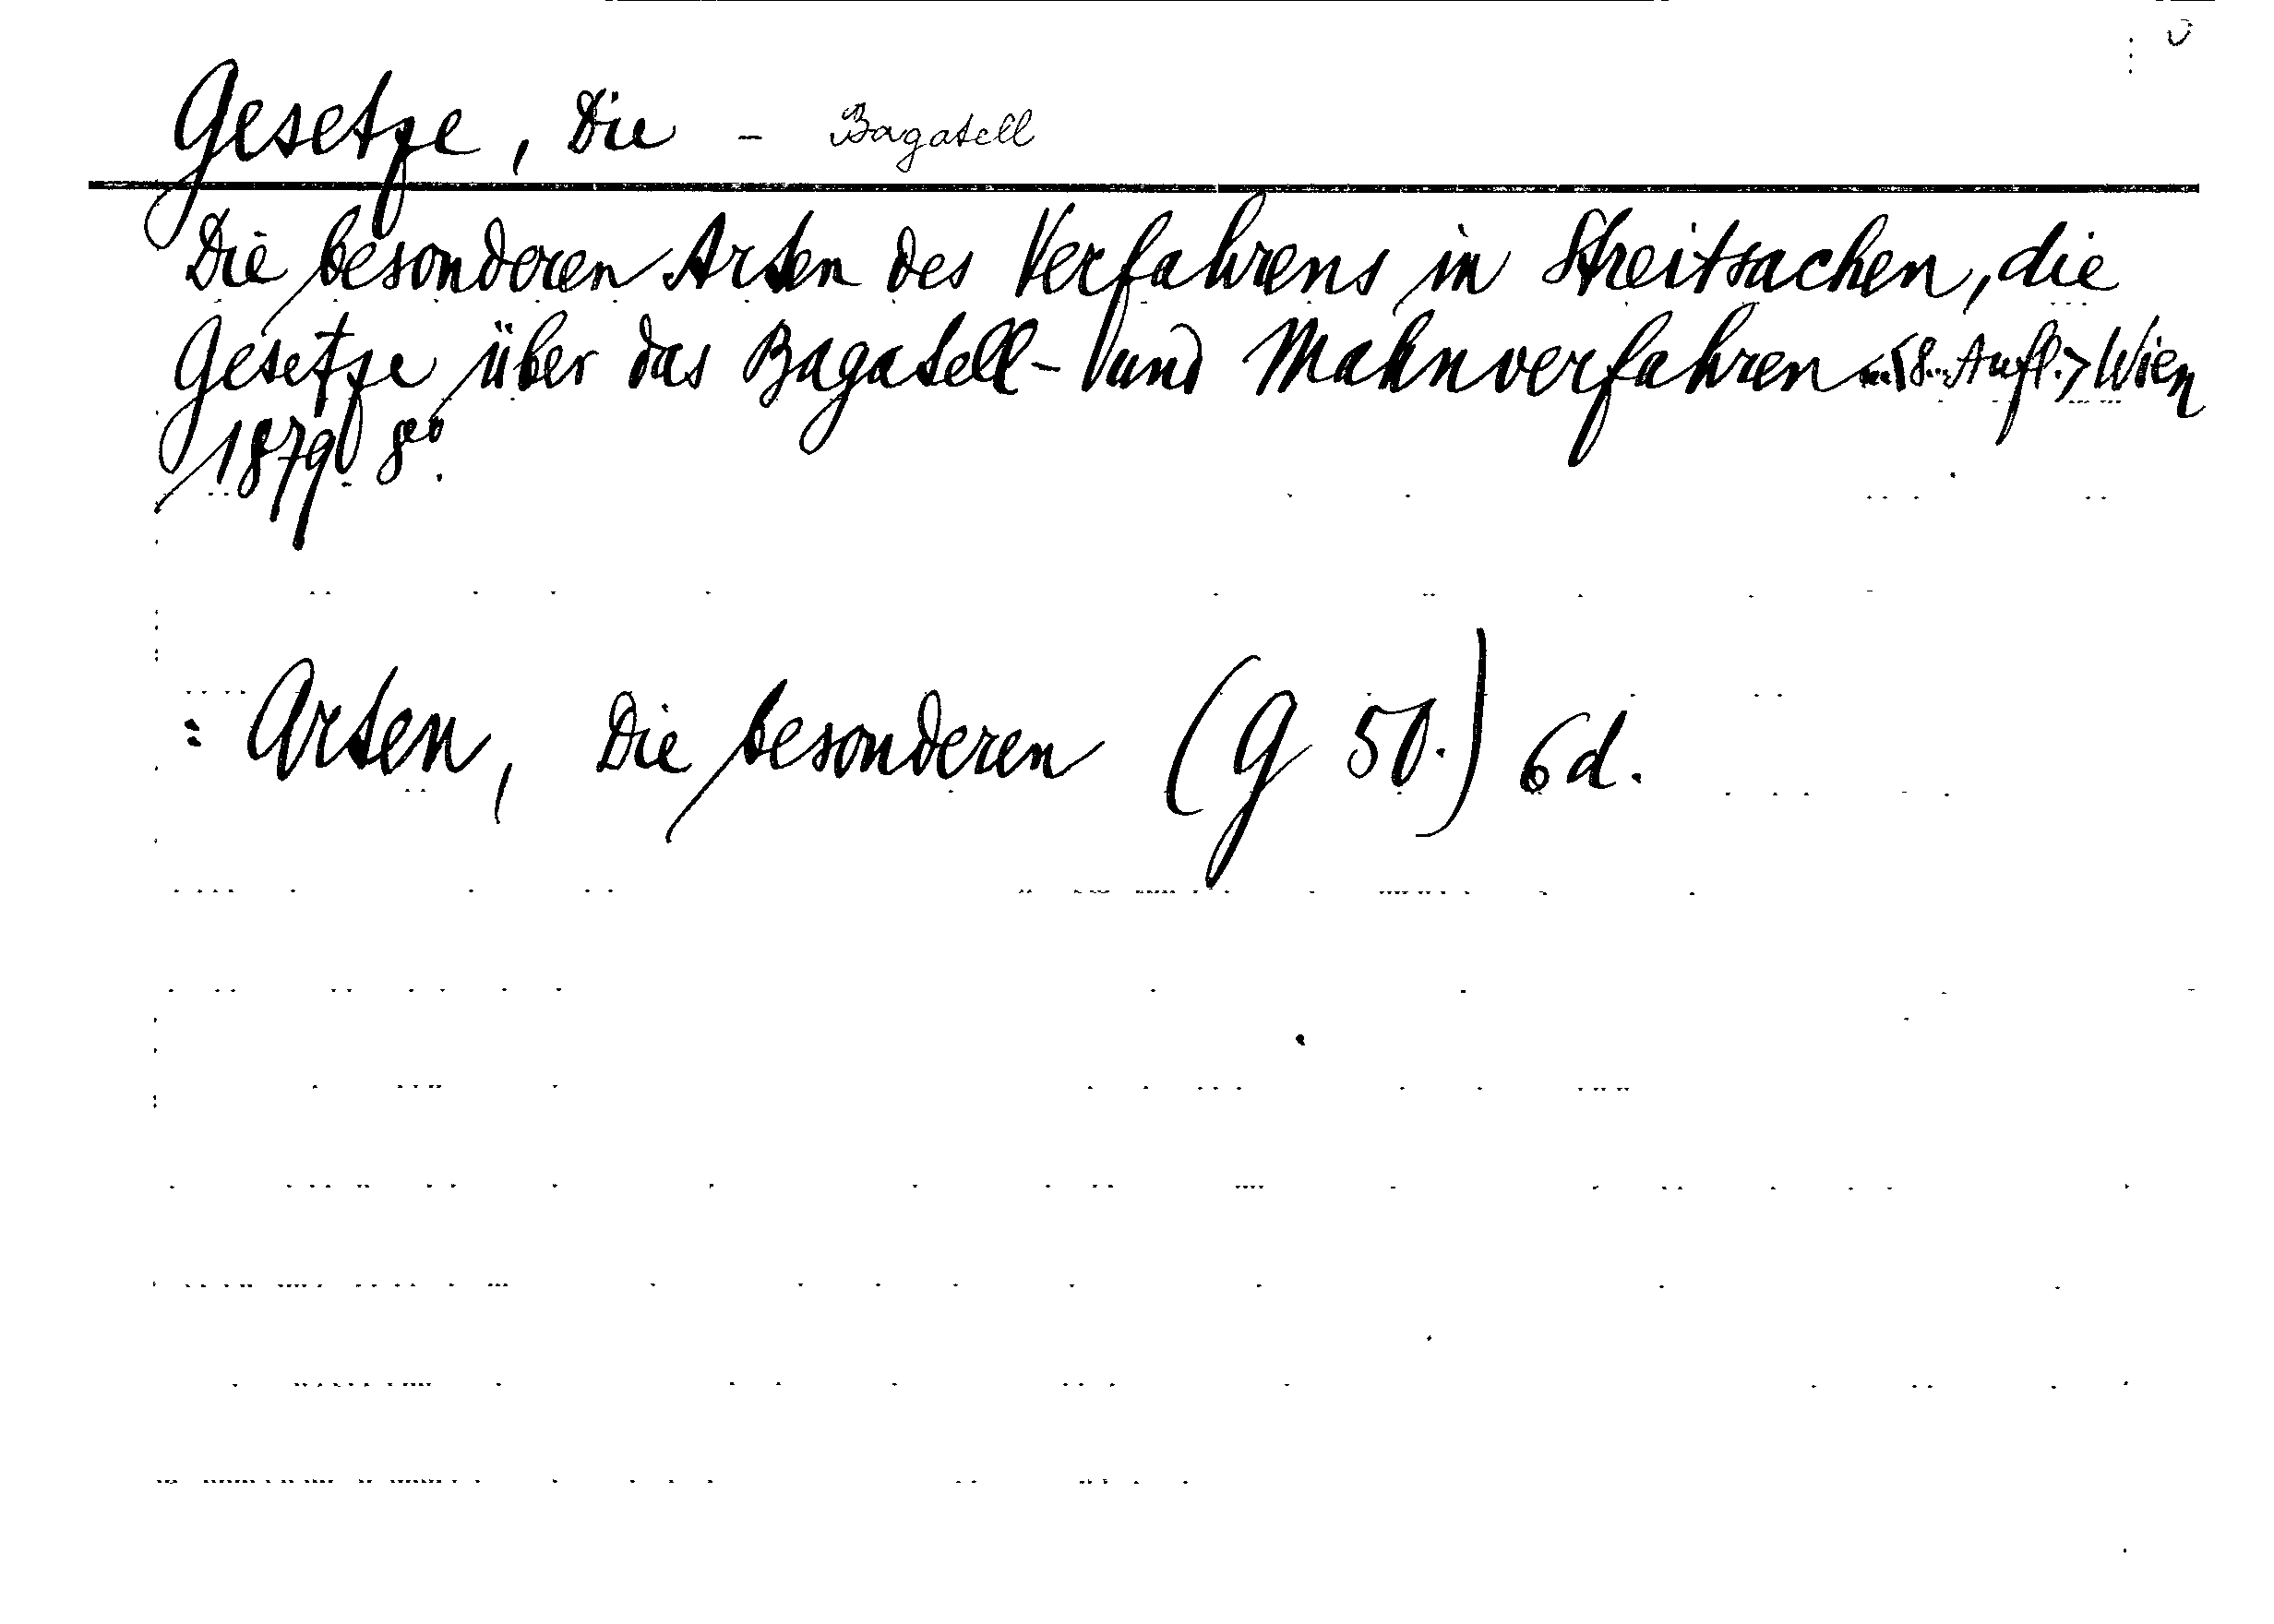 Gesetze, Die - Bagatell
Die besonderen Arten des Verfahrens in Streitsachen, die
Gesetze über das Bagatell- und Mahnverfahren ... <8. Aufl.> Wien
1879 8°.
= Arten, Die besonderen (G 50.) 6d.